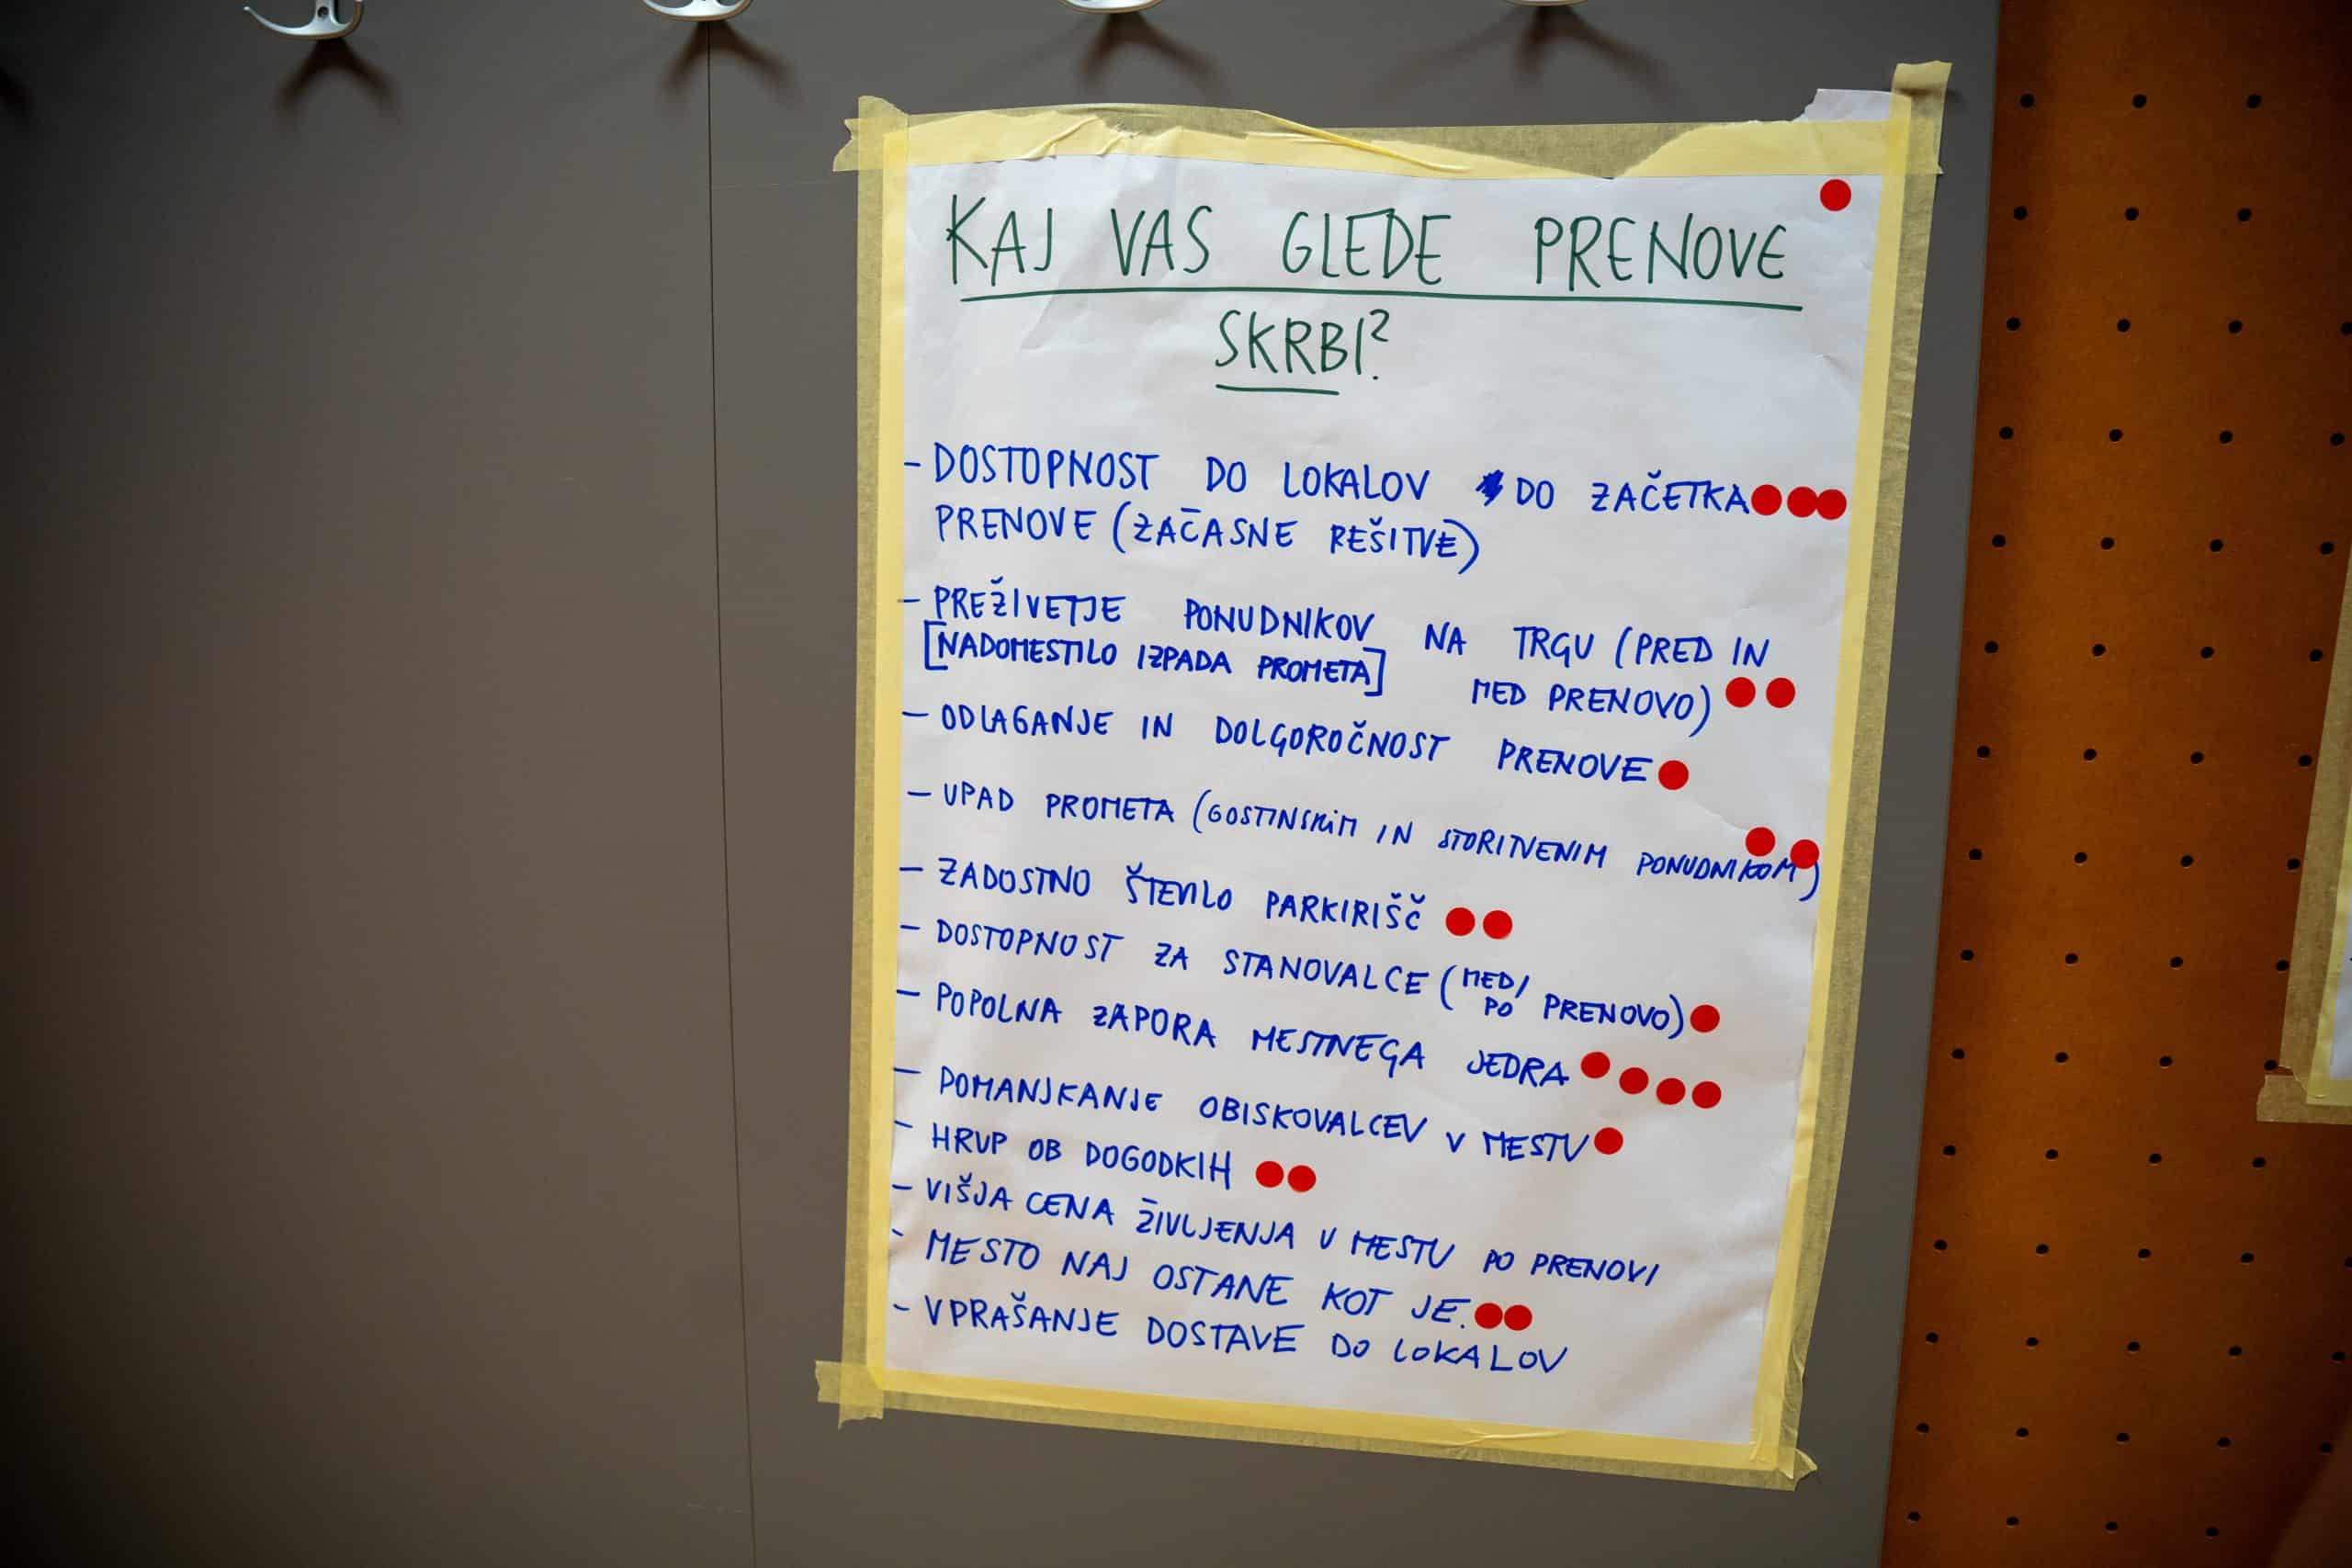 KAJ VAS GLEDE PRENOVE
SKRBI?
- DOSTOPNOST DO LOKALOV DO ZAČETKA
PRENOVE (ZAČASNE REŠITVE)
- PREŽIVETJE PONUDNIKOV NA TRGU (PRED IN
MED PRENOVO)
[NADOMESTILO IZPADA PROMETA]
- ODLAGANJE IN DOLGOROČNOST PRENOVE
- UPAD PROMETA (GOSTINSKIM IN STORITVENIM PONUDNIKOM)
- ZADOSTNO ŠTEVILO PARKIRIŠČ
- DOSTOPNOST ZA STANOVALCE (MED/PO PRENOVO)
- POPOLNA ZAPORA MESTNEGA JEDRA
- POMANJKANJE OBISKOVALCEV V MESTU
- HRUP OB DOGODKIH
- VIŠJA CENA ŽIVLJENJA V MESTU PO PRENOVI
- MESTO NAJ OSTANE KOT JE.
- VPRAŠANJE DOSTAVE DO LOKALOV